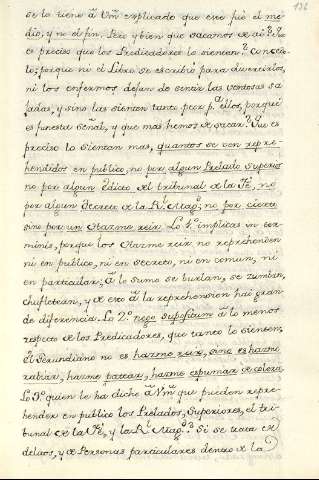 136
se lo tiene à Vm explicado que ese fué el me
dio, y no el fin. Pero y bien que sacamos de ai? Ea
es preciso que los Predicadores lo sientan? Conce
lo; porque ni el Libro se escribió para divertirlos,
ni los enfermos dejan de sentir las ventosas sa
jadas, y si no las sienten tanto peor pª ellos, porque
es funesta señal, y que mas hemos de sacar? Que es
preciso lo sientan mas, quantos se ven repre
hendidos en publico, no por algun Prelado Superior
no por algun Edicto del tribunal de la Fè, no
por algun Decreto de la Rl Magd; no por cierto
sino por un Hazme reir. Lo 1º implicas in ter
minis, porque los Hazme reir no reprehenden
ni en publico, ni en secreto, ni en comun, ni
en particular; à lo sumo se burlan, se zumban,
chufletean, y de esto à la reprehension hai gran
de diferencia. Lo 2º nego supositum à lo menos
respecto de los Predicadores, que tanto lo sienten,
El Gerundiano no es hazme reir, sino es hazme
rabiar, hazme patear, hazme espumar de colera
Lo 3º quien le ha dicho à Vmd que pueden repre
hender en publico los Prelados, Superiores, el tri
bunal de la Fè, y la Rl Magd? Si se trata de
delitos, y de Personas particulares dentro de la